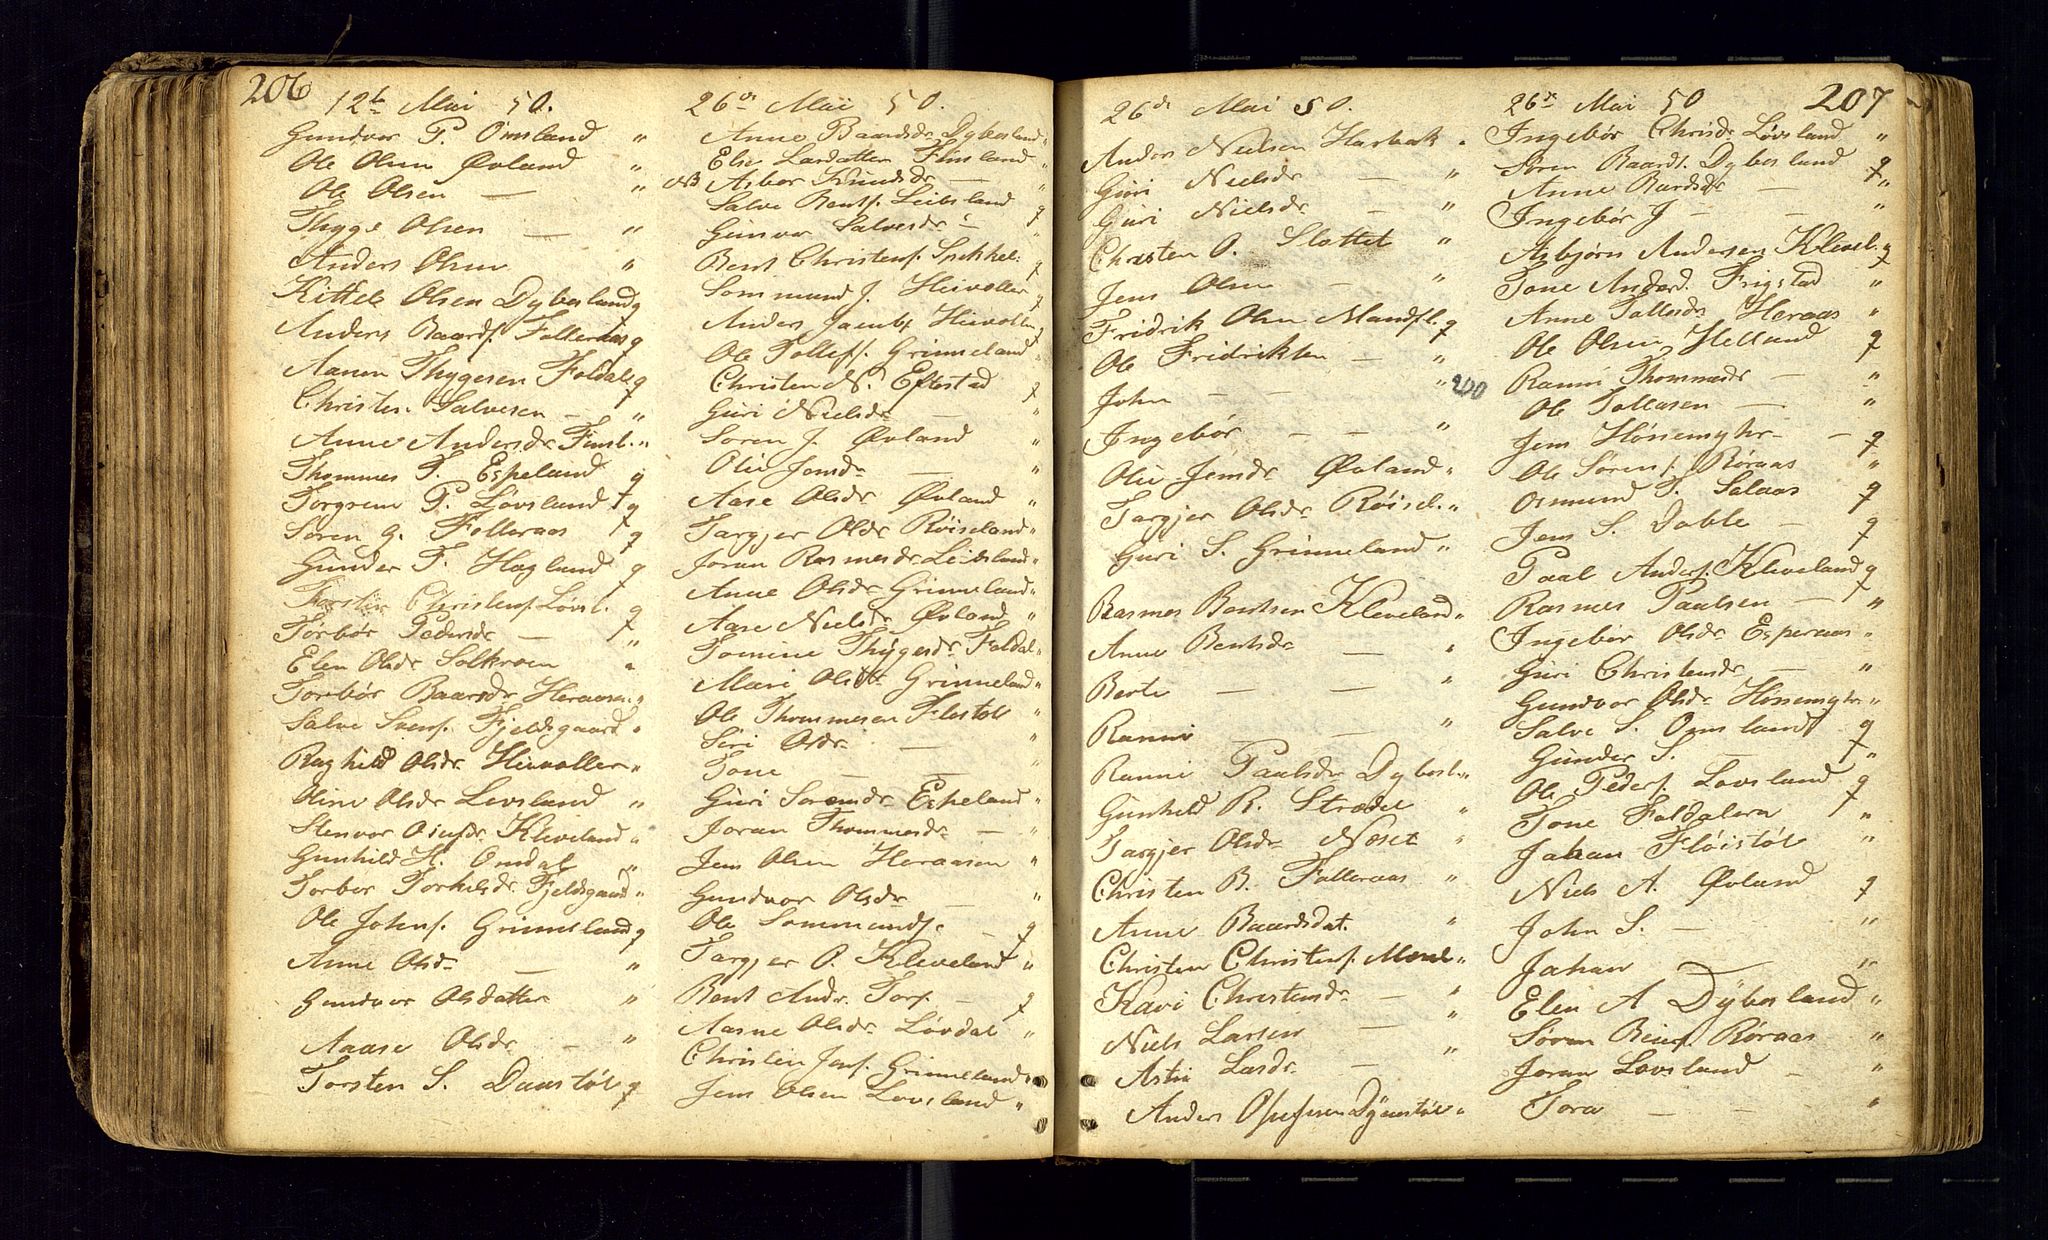 206
12te Mai 50.
Gundvor P. Omsland "
Ole Olsen Øvland "
Ole Olsen — "
Thygge Olsen — "
Anders Olsen "
Kittel Olsen Dybesland g
Anders Baards. Folleraas g
Aanen Thygesen Foldal g
Christen Salvesen — "
Anne Andersdr Finsl. "
Thommes T. Espeland g
Torgrim P. Løvsland g
Søren G. Folleraas g
Gunder T. Høgland g
Torsten Christens. Løvsl. g
Torbør Pedersdr — "
Elen Olsdr Solkroen "
Torbør Baardsdr Heraasen "
Salve Svens. Fjeldsgaard "
Raghild Olsdr Heivollen "
Oline Olsdr Levsland "
Stenvor Kleveland "
Gunhild H. Omdal "
Torbor Torkelsdr Fjeldsgaard "
Ole Johns. Grimmeland g
Anne Olsdr — "
Gundvor Olsdatter "
Aaase Olsdr — "
Torsten S. Daastøl g
26de Mai 50.
Anne Baardsdr Dybesland "
Else Larsdatter Finsland "
NB Asbor Knudsdr — "
Salve Bents. Leibsland g
Gunvor Salvesdr — "
Bent Christens. Spikkel. g
Sommund J. Heivollen g
Anders Jacobs. Heivollen g
Ole Tollefs. Grimmeland "
Christen N. Eftestad g
Guri Nielsdr — "
Soren J. Øvland "
Olie Jensdr — "
Aase Olsdr Øvland "
Targjer Olsdr Røiseland "
Joran Rasmesdr Leibsland "
Anne Olsdr Grimmeland "
Aase Nielsdr Øvland "
Tomine Thygesdr Foldal "
Mari Olsdtr Grimmeland "
Ole Thommesen Flostøl "
Siri Olsdr — "
Tone — — "
Guri Sorensdr Espeland "
Joran Thommesdr — "
Jens Olsen Heraasen "
Gundvor Olsdr — "
Ole Sommunds. — g
Targjer O. Kleveland "
Bent Andr. Torp — g
Aasne Olsdr Løvdal "
Christen Jens. Grimmeland "
Jens Olsen Lovsland "
26de Mai 50.
Anders Nielsen Harbak "
Guri Nielsdr — "
Guri Nielsdr — "
Christen O. Slottet "
Jens Olsen — "
Fridrik Olsen Mandfl. g
Ole Fridriksen — "
John — — " 200
Ingebør — — "
Olie Jensdr Øvland "
Targjer Olsdr Røisel. "
Guri S. Grimmeland "
Rasmes Bentsen Kleveland "
Anne Bentsdr — "
Berte — — "
Ranni — — "
Ranni Paulsdr Dybesl. "
Gunhild R. Strædet "
Targjer Olsdr Noset "
Christen B. Folleraas "
Anne Baardsdat. "
Christen Christens. "
Kari Christensdr — "
Niels Larsen — "
Astri Lasdr — "
Anders "
26de Mai 50 207
Ingebør Chrisdr Løvsland "
Søren Baards. Dybesland g
Anne Bardsdr — "
Ingebør J — — "
Asbjørn Andersen Klevel. g
Tone Andersd. Frigstad "
Anne Tallesdr Heraas "
Ole Olsen Helland g
Ranni Thommesdr — "
Ole Tollasen — "
Jens Hønemyhr — g
Ole Sørens. Røraas "
Osmund T. Salaas g
Jens S. Doble — g
Paal Anders. Kleveland g
Rasmes Paulsen — "
Ingebør Olsdr Esperaas "
Guri Christensdr — "
Gundvor Olsdr Hønemyhr "
Salve S. Omsland g
Gunder S. — "
Ole Peders. Lovsland g
Tone Foldalen "
Johan Fløistøl "
Niels A. Øvland g
John S. — "
Johan — "
Elen A Dybesland "
Søren Røraas "
Joran Lovsland — "
Tora — — "